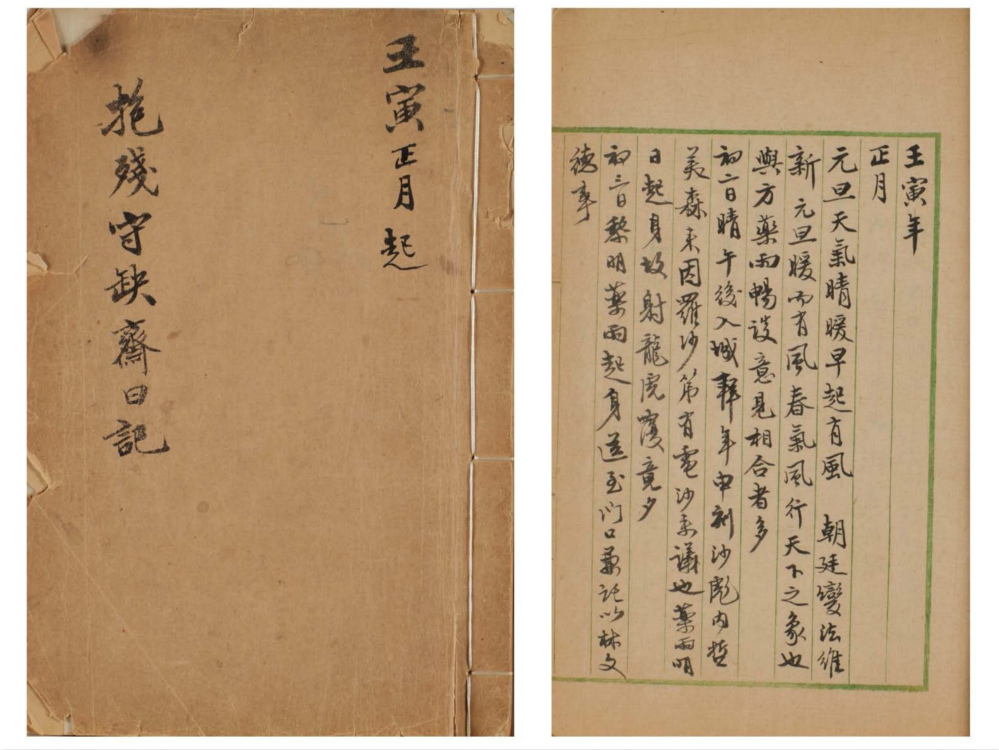 壬寅正月起
抱殘守缺齋日記
壬寅年
正月
元旦天氣晴暖早起有風　朝廷變法維
新　元旦暖而有風春氣風行天下之象也
與方藥雨暢談意見相合者多
初二日晴午後入城拜年申刻沙彪內哲
美森來因羅沙第有電沙來議也藥雨明
日起身故射龍虎覆竟夕
初三日黎明藥雨起身送至門口並託以林文
德事